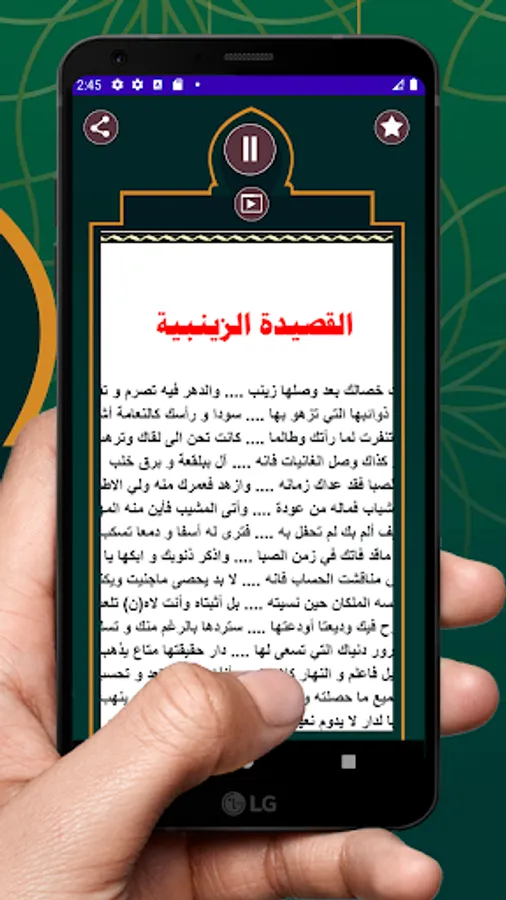 2:45
القصيدة الزينبية
خصالك بعد وصلها زينب .... والدهر فيه تصرم و
ذوائبها التي تزهو بها .... سودا و رأسك كالنعامة
تنفرت لما رأتك وطالما .... كانت تحن الى لقاك
كذاك وصل الغانيات فانه .... آل ببلقعة و برق خلب
فقد عداك زمانه .... وازهد فعمرك منه ولي
فماله من عودة .... وأتى المشيب فأين منه
ألم بك لم تحفل به .... فترى له أسفا و دمعا
ماقد فاتك في زمن الصبا .... واذكر ذنوبك و ابكها يا
مناقشت الحساب فانه .... لا بد يحصى ماجنيت
الملكان حين نسيته .... بل أثبتاه وأنت لاه(ن)
فيك وديعتا أودعتها .... ستردها بالرغم منك و
دنياك التي تسعى لها .... دار حقيقتها متاع
فاعلم و النهار و تحسب
ما حصلته
لدار لا يدوم
LG